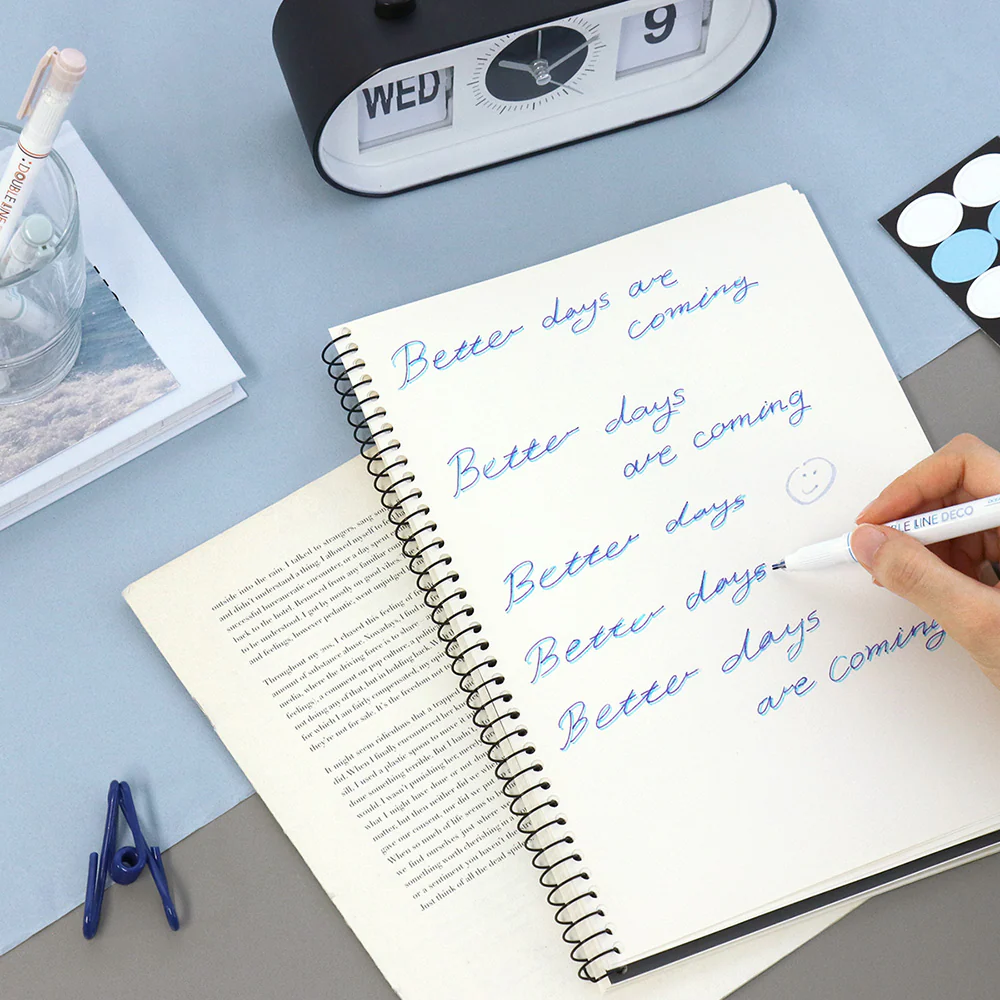 WED
9
:DOUBLE LINE
Better days are
coming
Better days
are coming
Better days
Better days
Better days
are coming
BLE LINE DECO
outside into the rain. I talked to strangers, sang
and didn't understand a thing. I allowed myself to
successful bureaucratic encounter, or a day spent
back to the hotel. Removed from any familiar
to be understood, I got by mostly on good
and feelings, however pedantic, went unjudged
Throughout my 20s, I chased this feeling of
amount of substance abuse. Nowadays, I find
media, where the driving force is to share
feelings, a comment on pop culture, a
not doing any of that, but in holding back,
for which I am fairly compensated, my
they're not for sale. It's the freedom not
It might seem ridiculous that a trapped
did. When I finally encountered her
all. I used a plastic spoon to move it
done something terrible. But I hadn't
would. I wasn't punishing her, merely
what I might have done or not done
matter, but then neither did we
gave our consent, nor did we
When so much of life seems to
we find ourselves just where we
something worth cherishing in a
or a sentiment you haven't the
Just think of all the dead